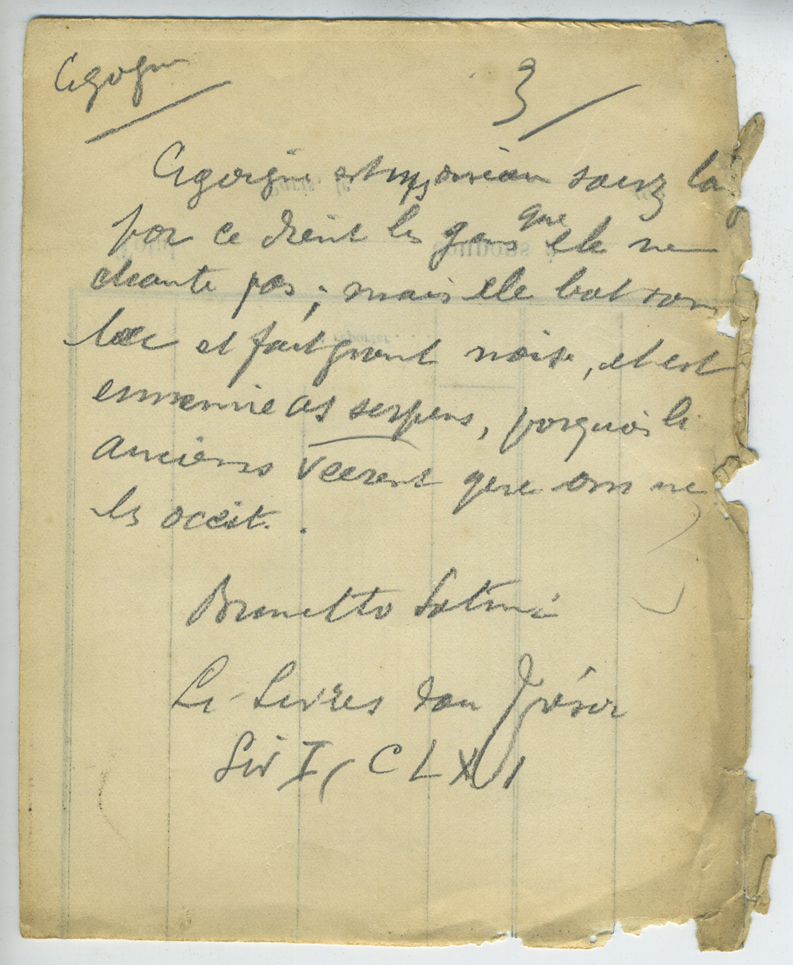 Cigogne
3
Cigoigne est uns oiseau sanz la
por ce dient les gens que ele ne
chante pas; mais ele bat son
bec et fait grant noise, et est
ennemie as serpens, porquoi li
anciens veerent que on ne
les occit.
Brunetto Latini
Li Livres dou Trésor
Liv I, CLXI